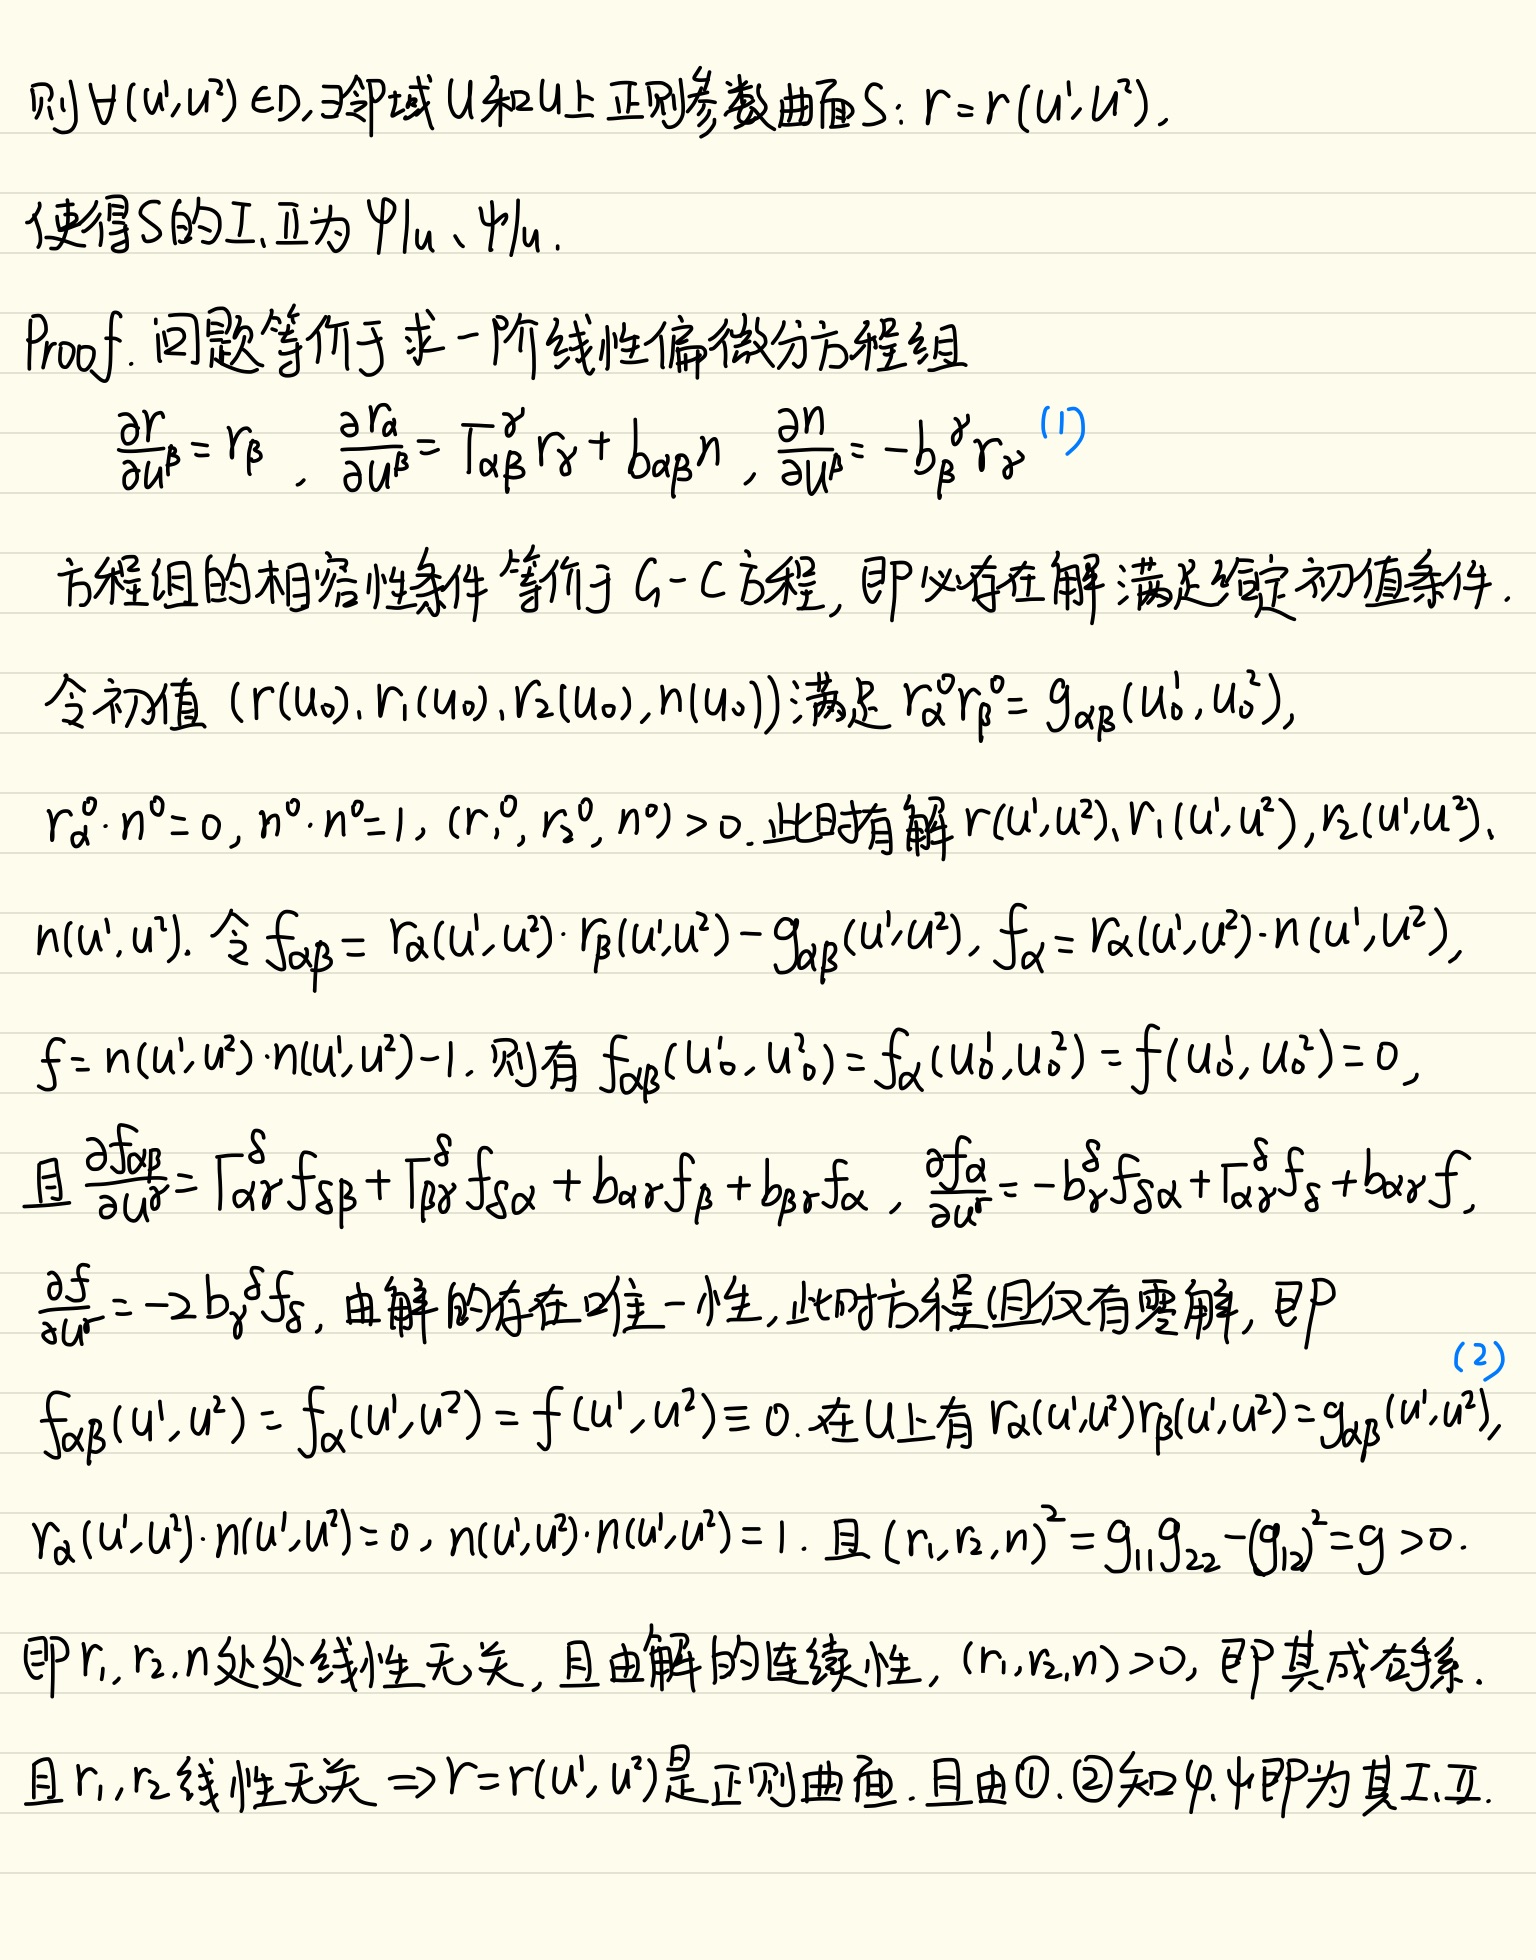 则∀(u¹,u²)∈D,∃邻域U和U上正则参数曲面S: r=r(u¹,u²),
使得S的I、II为φ|u、ψ|u.
Proof. 问题等价于求一阶线性偏微分方程组
∂r/∂u^β = r_β , ∂r_α/∂u^β = Γ_αβ^γ r_γ + b_αβ n , ∂n/∂u^β = -b_β^γ r_γ (1)
方程组的相容性条件等价于G-C方程, 即必存在解满足给定初值条件.
令初值 (r(u₀), r₁(u₀), r₂(u₀), n(u₀))满足 r_α⁰r_β⁰ = g_αβ(u₀¹,u₀²),
r_α⁰·n⁰=0, n⁰·n⁰=1, (r₁⁰, r₂⁰, n⁰)>0. 此时有解 r(u¹,u²)、r₁(u¹,u²), r₂(u¹,u²)、
n(u¹,u²). 令 f_αβ = r_α(u¹,u²)·r_β(u¹,u²) - g_αβ(u¹,u²), f_α = r_α(u¹,u²)·n(u¹,u²),
f = n(u¹,u²)·n(u¹,u²)-1. 则有 f_αβ(u₀¹,u₀²) = f_α(u₀¹,u₀²) = f(u₀¹,u₀²) = 0,
且 ∂f_αβ/∂u^γ = Γ_αγ^δ f_δβ + Γ_βγ^δ f_δα + b_αγ f_β + b_βγ f_α , ∂f_α/∂u^γ = -b_γ^δ f_δα + Γ_αγ^δ f_δ + b_αγ f,
∂f/∂u^γ = -2b_γ^δ f_δ, 由解的存在唯一性, 此时方程组仅有零解, 即
f_αβ(u¹,u²) = f_α(u¹,u²) = f(u¹,u²) ≡ 0. 在U上有 r_α(u¹,u²)r_β(u¹,u²) = g_αβ(u¹,u²), (2)
r_α(u¹,u²)·n(u¹,u²)=0, n(u¹,u²)·n(u¹,u²)=1. 且 (r₁,r₂,n)² = g₁₁g₂₂-(g₁₂)² = g >0.
即r₁, r₂, n处处线性无关, 且由解的连续性, (r₁,r₂,n)>0, 即其成右手系.
且r₁, r₂线性无关 ⇒ r=r(u¹,u²)是正则曲面. 且由①.②知φ、ψ即为其I、II.